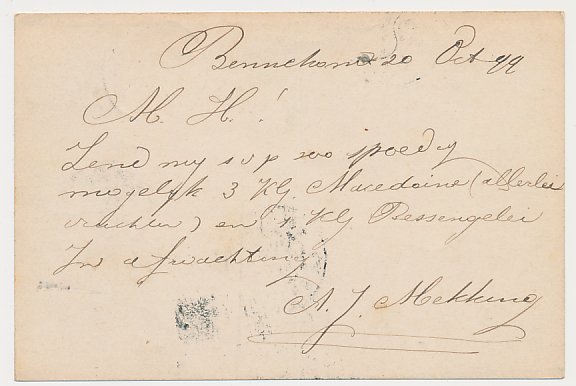 Bennekom 20 Oct 99
M. H.!
Zend my s v p zoo spoedig
mogelyk 3 Kg Macedoine (allerlei
vruchten) en 1 Kg Bessengelei
In afwachting
A. J. Mekking